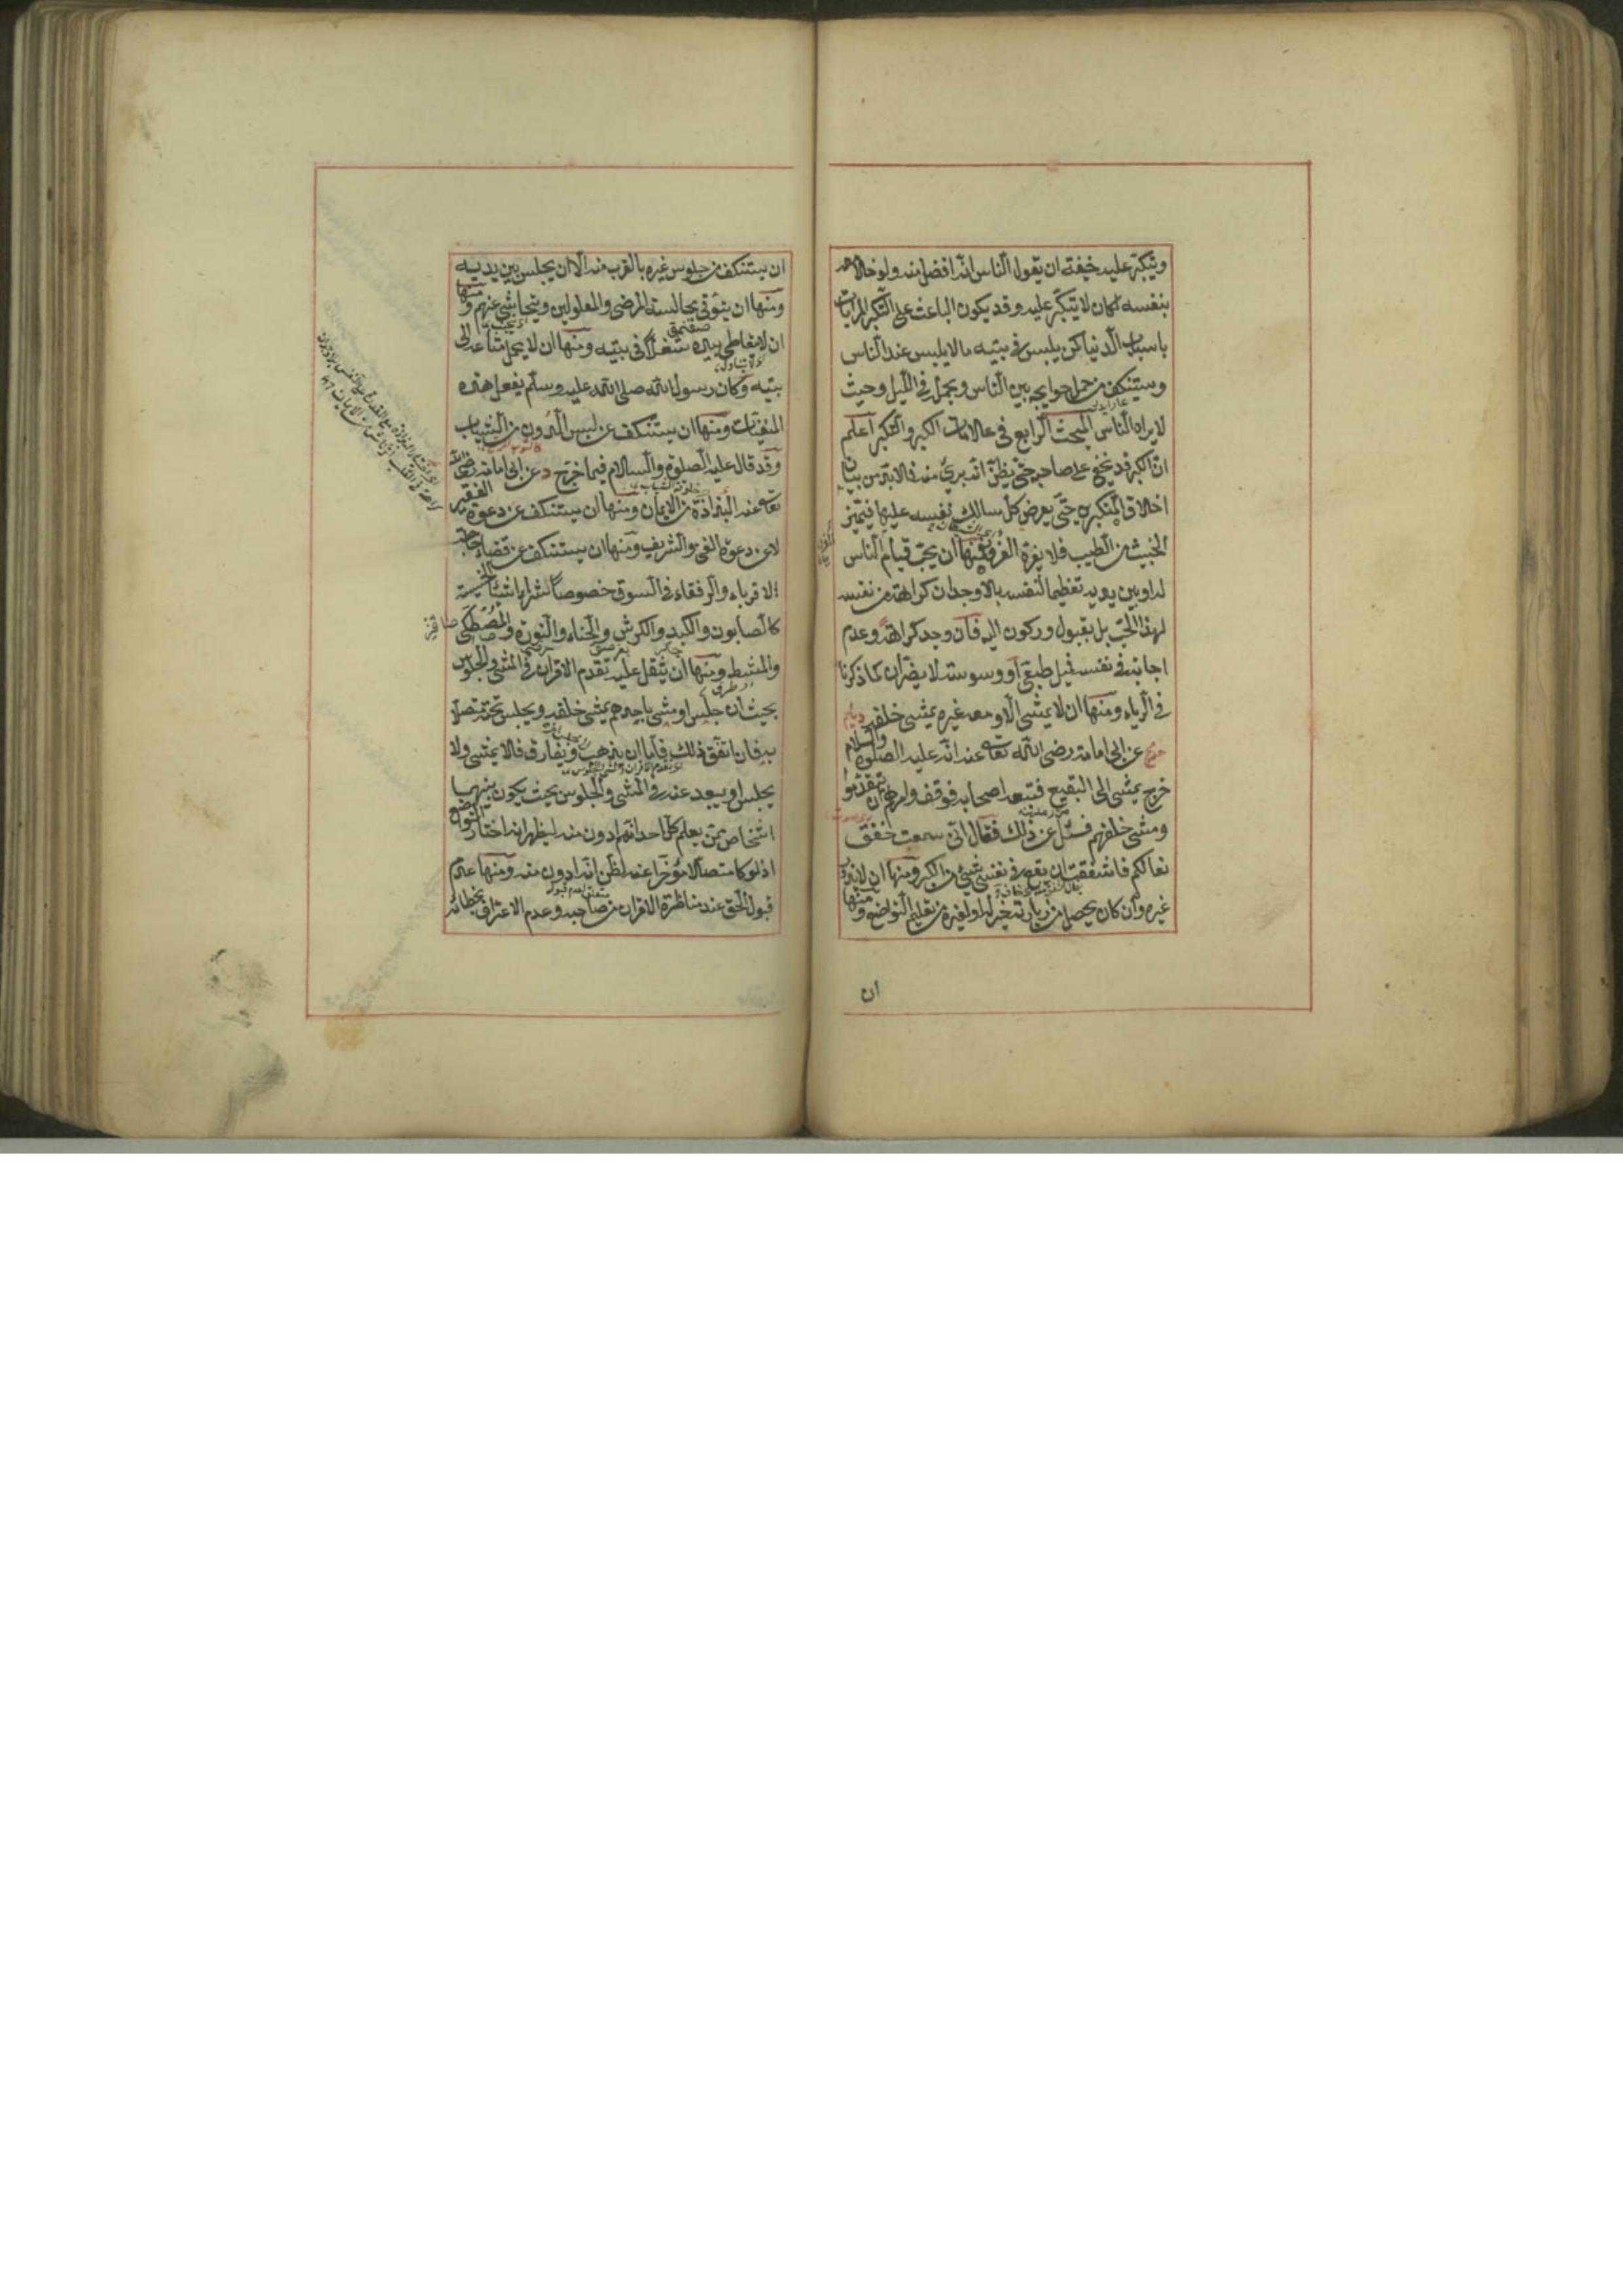 ويتكبر عليه خيفة ان يقول الناس انه افضل منه ولو خلا معه
بنفسه لكان لا يتكبر عليه وقد يكون الباعث على التكبر المرايات
باسباب الدنيا كمن يلبس في بيته ما لا يلبس عند الناس
ويستنكف من حمل حوايجه بين الناس ويحمل في الليل وحيث
لا يراه الناس المبحث الرابع في علامات الكبر والتكبر اعلم
ان الكبر قد يخفى على صاحبه حتى يظن انه بريء منه فلا بد من بيان
اخلاق المتكبرين حتى يعرض كل سالك نفسه عليها فيتميز
الخبيث من الطيب فلا يغره الغرور فمنها ان يحب قيام الناس
له او بين يديه تعظيما لنفسه بلا وجدان كراهة من نفسه
لهذا الحب بل بقبول وركون اليه فان وجد كراهة وعدم
اجابة في نفسه فميل طبعي او وسوسة لا يضران كما ذكرنا
في الرياء ومنها ان لا يمشي الا ومعه غيره يمشي خلفه
عن ابي امامة رضي الله تعالى عنه انه عليه الصلوة والسلام
خرج يمشي الى البقيع فتبعه اصحابه فوقف وامرهم ان يتقدموا
ومشى خلفهم فسئل عن ذلك فقال اني سمعت خفق
نعالكم فاشفقت ان يقع في نفسي شيء من الكبر ومنها ان لا يزور
غيره وان كان يحصل من زيارته خير له او لغيره من تعليم التواضع ومنها
ان
ان يستنكف من جلوس غيره بالقرب منه الا ان يجلس بين يديه
ومنها ان يتوقى مجالسة المرضى والمعلولين ويتحاشى عنهم ومنها
ان لا يتعاطى بيده شغلا في بيته ومنها ان لا يحمل متاعه الى
بيته وكان رسول الله صلى الله عليه وسلم يفعل هذه
المنفيات ومنها ان يستنكف عن لبس الدون من الثياب
وقد قال عليه الصلوة والسلام فيما خرج د عن ابي امامة رضي الله
تعالى عنه البذاذة من الايمان ومنها ان يستنكف عن دعوة الفقير
لا عن دعوة الغني والشريف ومنها ان يستنكف عن قضاء حاجة
الاقرباء والرفقاء في السوق خصوصا شراء الاشياء الخسيسة
كالصابون والكبد والكرش والحناء والنورة والمصطكى
والمشط ومنها ان يثقل عليه تقدم الاقران في المشي والجلوس
بحيث ان جلس او مشى باحدهم يمشي خلفه ويجلس تحته متصلا
به فان اتفق ذلك فاما ان يذهب ويفارق فلا يمشي ولا
يجلس او يبعد عنه في المشي والجلوس بحيث يكون بينهما
اشخاص ممن يعلم كل احد انهم ادون منه ليظهر انه اختار التواضع
اذ لو كان متصلا مؤخرا عنه لظن انه ادون منه ومنها عدم
قبول الحق عند مناظرة الاقران من صاحبه وعدم الاعتراف بخطائه